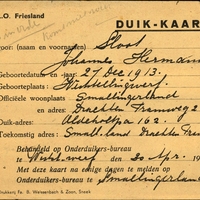 L.O. Friesland
DUIK-KAAR
voor: (naam en voornamen) Sloot
Johannes Hermanu
Geboortedatum en -jaar: 27 Dec 1913.
Geboorteplaats: Weststellingwerf.
Officiëele woonplaats Smallingerland
en adres: Drachten Fremweg 2
Duik-adres: Oldeholtpa 162.
Toekomstig adres: Small.land Drachten Frem
Behandeld op Onderduikers-bureau te
Westst.werf den 20 Apr. 19
Met deze kaart na eenige dagen te melden op
Onderduikers-bureau te Smallingerland
Drukkerij Fa. B. Weissenbach & Zoon, Sneek